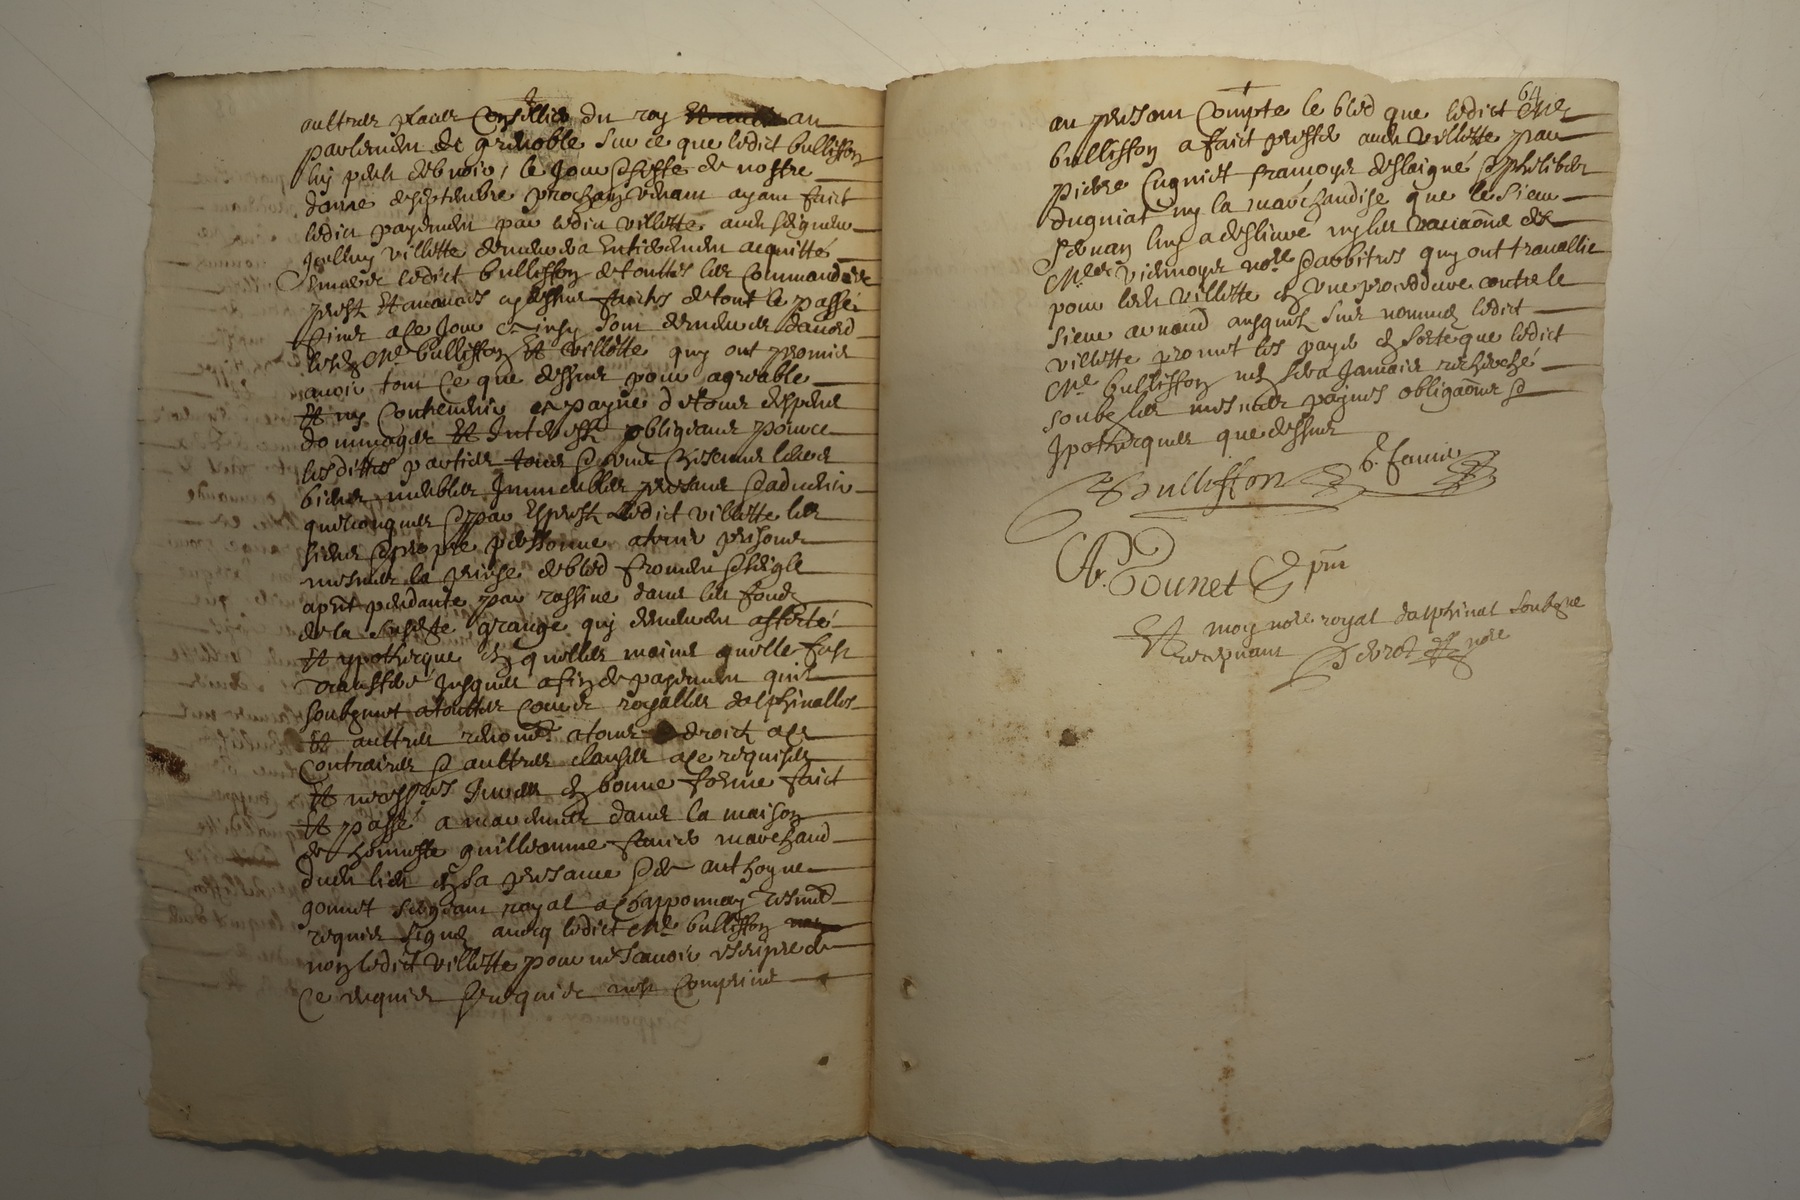 aultres place conseillier du roy au
parlement de grenoble sur ce que ledict bulliffon
luy peult debvoir, le jour & feste de nostre
dame de septembre prochain venant ayant faict
ledict payement par ledict villette audict seigneur
Icelluy villette demeurera entierement acquitté
envers ledict bulliffon de touttes les commandes
prest et aultres cy dessus faictes de tout le passé
jusques a ce jour et insy sont demeurés daccord
lesdicts Me bulliffon et villette quy ont promis
avoir tout ce que dessus pour agreable
et ny contrevenir a payne de tous despens
dommages et interestz obligeant pour ce
lesdittes parties tous & chescungs leurs
biens meubles immeubles presans & advenir
quelconques & par exprest ledict villette les
siens & propre personne a tenir prison
mesmes la prise de bled froment & seigle
apnt pendante par rassine dans les fondz
de la susditte grange quy demeurent affecté
et ypotheque en quelles mains quelle soit
transferé jusques a fin de payement quil
soubzmet a touttes cours royalles dalphinalles
et aultres renonce a tous droictz a ce
contraires & aultres clauses a ce requises
et necess.res Jurées en bonne forme faict
et passé a dans la maison
de honneste guilleaume faure marchand
dudict lieu en la presance & de anthoyne
gonnet sergeant royal a chapponnay tesmoings
requis signés avecq ledict Me bulliffon
non ledict villette pour ne scavoir escripre de
ce requis & requis nest comprins
64
au presant compte le bled que ledict Me
bulliffon a faict prester audict villette par
pierre cugniet françoys deslaigue & philibert
dugniat ny la marchandise que le sieur
luy a deslivré ny les vaccaons de
Me vilnoyer nore & arbitres quy ont travallié
pour ledict villette en une procedure contre le
sieur arnaud ausquels sus nommés ledict
villette promet les payer en sorte que ledict
Me bulliffon nen sera jamais recherché
soubz les mesmes paynes obligaons &
Ipothecques que dessus
Bulliffon G. faure
A. Gounet pnt
Et moy nore royal dalphinal soubzne
recepvant nore